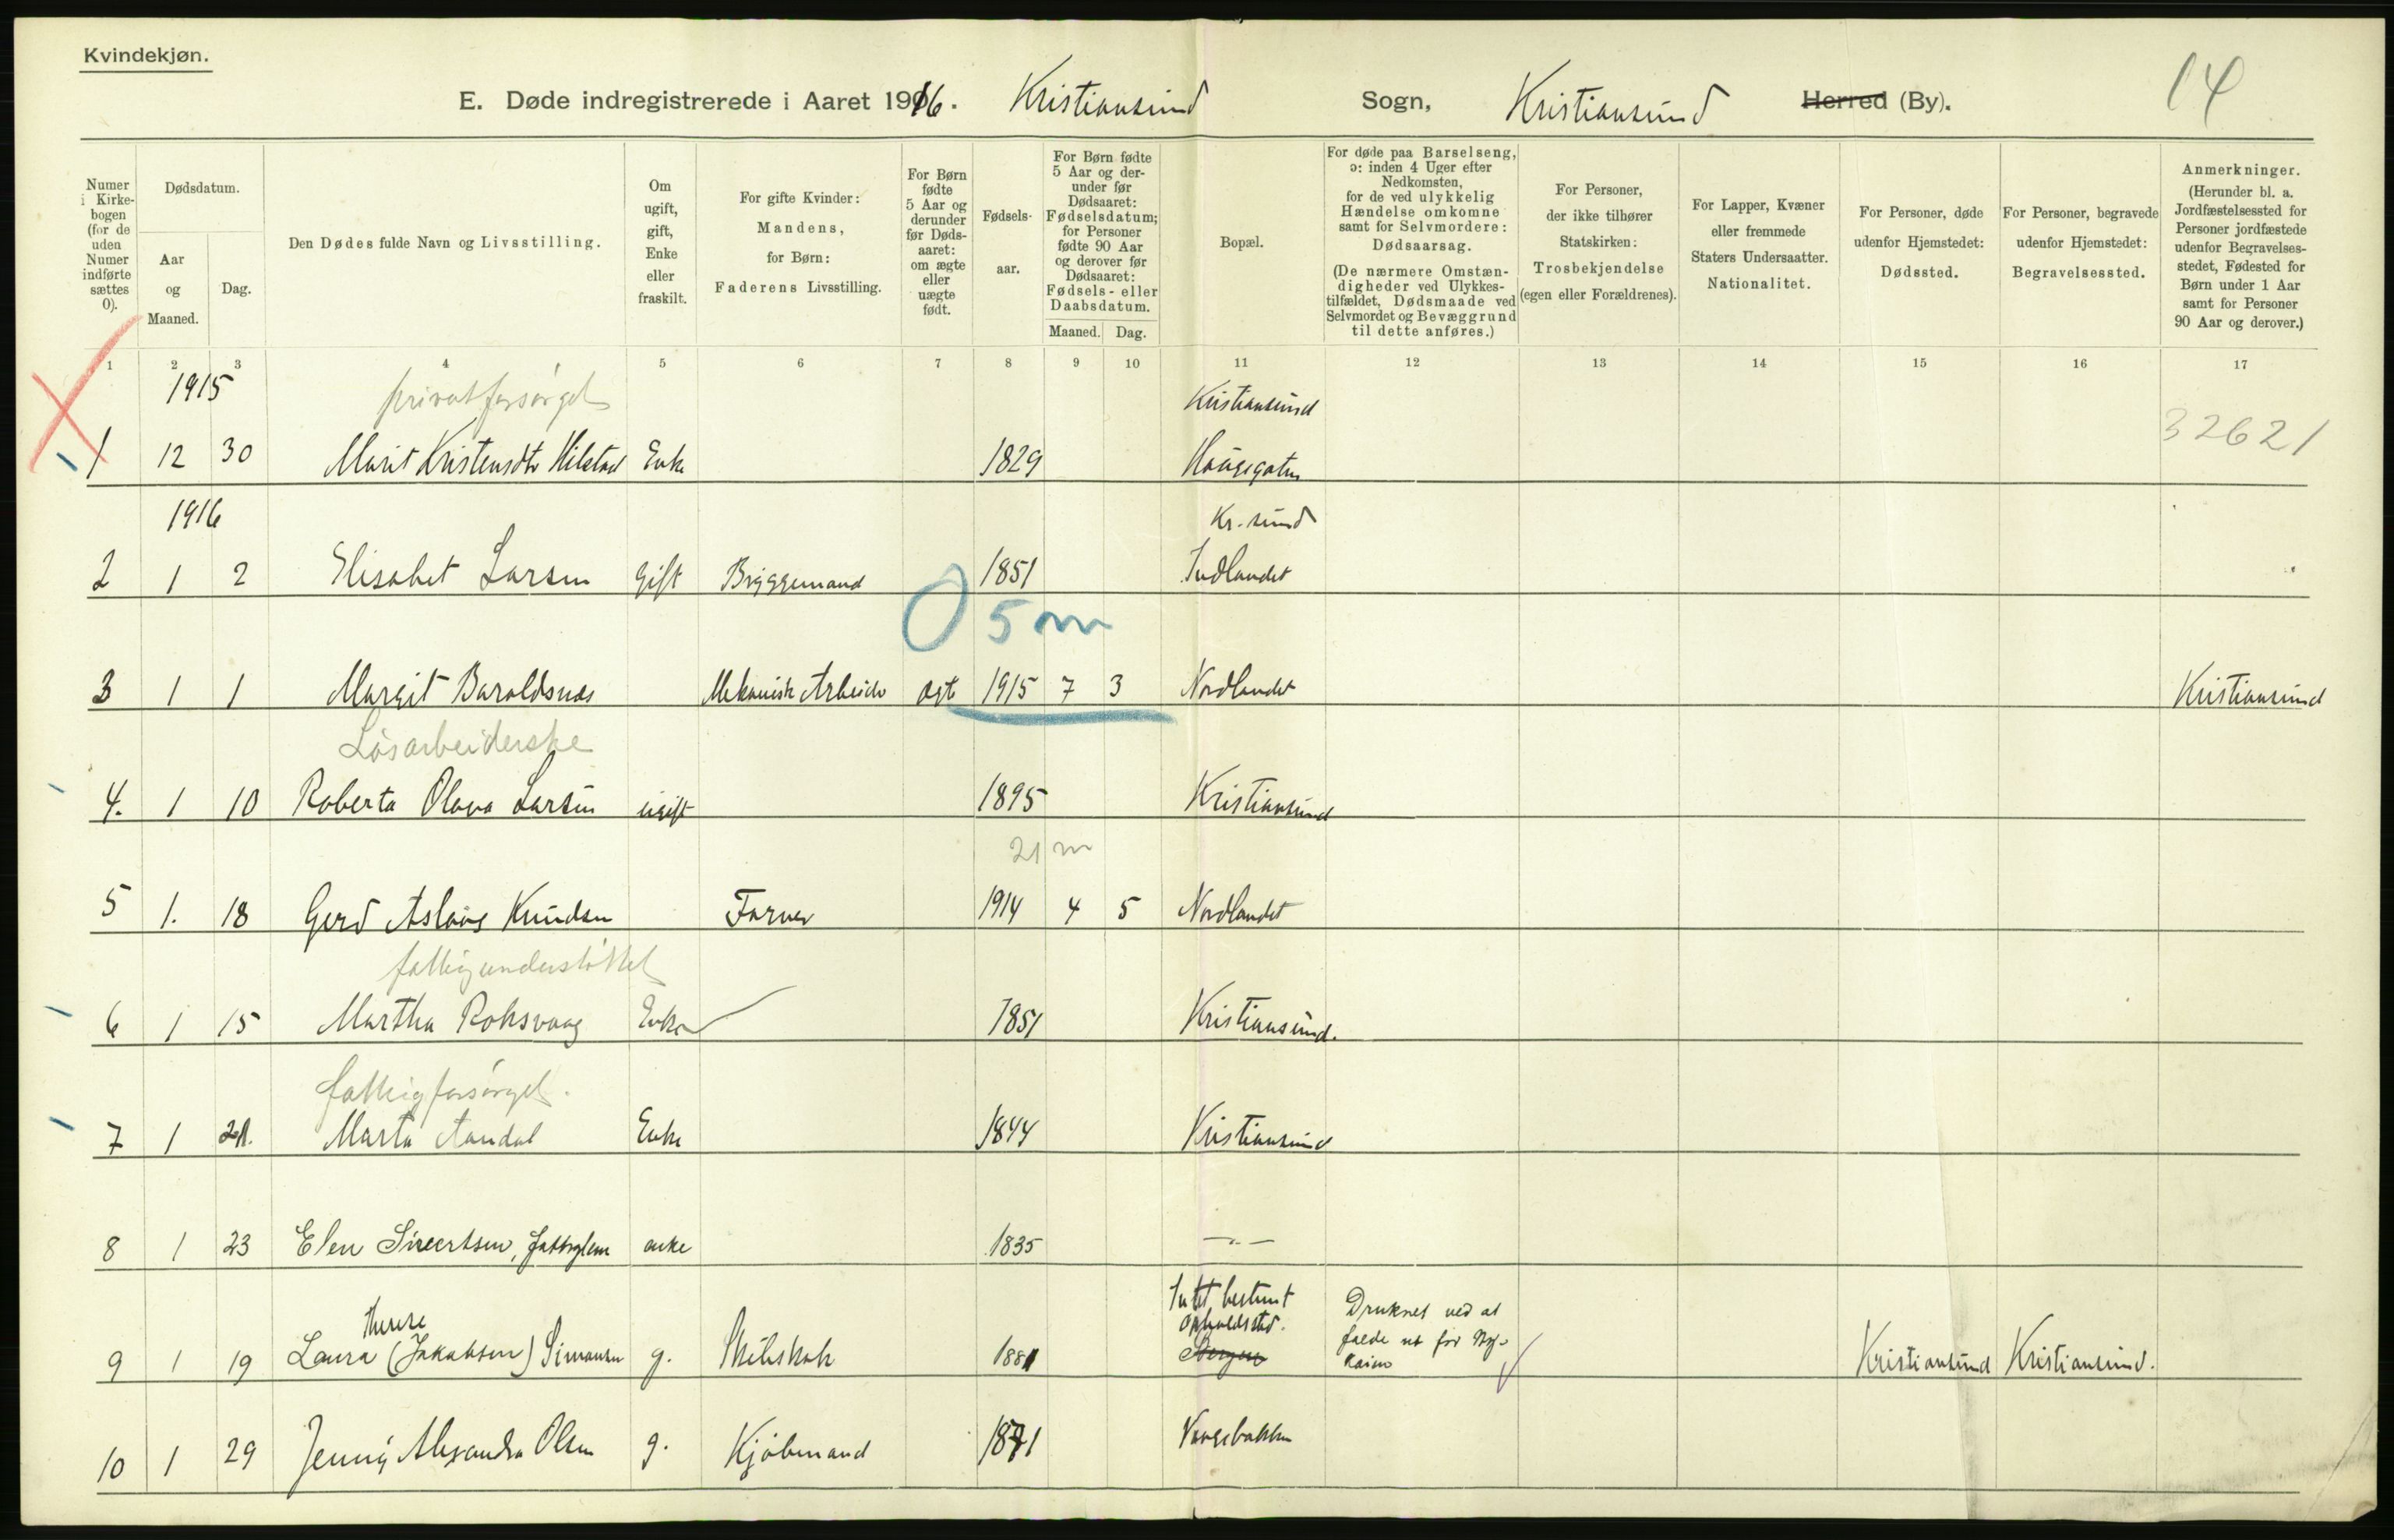 Kvindekjøn.
E. Døde indregistrerede i Aaret 1916. Kristiansund Sogn, Kristiansund Herred (By). 14
Numer i Kirke-bogen (for de uden Numer indførte sættes 0).
Dødsdatum.
Aar og Maaned.
Dag.
Den Dødes fulde Navn og Livsstilling.
Om ugift, gift, Enke eller fraskilt.
For gifte Kvinder: Mandens, for Børn: Faderens Livsstilling.
For Børn fødte 5 Aar og derunder før Døds-aaret: om ægte eller uægte født.
Fødsels-aar.
For Børn fødte 5 Aar og der-under før Dødsaaret: Fødselsdatum; for Personer fødte 90 Aar og derover før Dødsaaret: Fødsels- eller Daabsdatum.
Maaned. Dag.
Bopæl.
For døde paa Barselseng, ɔ: inden 4 Uger efter Nedkomsten, for de ved ulykkelig Hændelse omkomne samt for Selvmordere: Dødsaarsag.
(De nærmere Omstæn-digheder ved Ulykkes-tilfældet, Dødsmaade ved Selvmordet og Bevæggrund til dette anføres.)
For Personer, der ikke tilhører Statskirken: Trosbekjendelse (egen eller Forældrenes).
For Lapper, Kvæner eller fremmede Staters Undersaatter. Nationalitet.
For Personer, døde udenfor Hjemstedet: Dødssted.
For Personer, begravede udenfor Hjemstedet: Begravelsessted.
Anmerkninger.
(Herunder bl. a. Jordfæstelsessted for Personer jordfæstede udenfor Begravelses-stedet, Fødested for Børn under 1 Aar samt for Personer 90 Aar og derover.)
1 2 3 4 5 6 7 8 9 10 11 12 13 14 15 16 17
1915 privat forsørget Kristiansund
1 12 30 Marit Kristensdtr Hilstad Enke 1829 Haugegaten 32621
1916 Kr.sund
2 1 2 Elisabet Larsen Gift Bryggemand 1851 Indlandet
5 m
3 1 1 Margit Baraldsnes Mekanisk Arbeider ægt 1915 7 3 Nordlandet Kristiansund
Løsarbeiderske
4. 1 10 Roberta Olava Larsen ugift 1895 Kristiansund
21 m
5 1. 18 Gerd Aslaug Knudsen Farver 1914 4 5 Nordlandet
fattigunderstøttet
6 1 15 Martha Roksvaag Enke 1851 Kristiansund.
fattigforsørget.
7 1 21. Marta Aandal Enke 1844 Kristiansund
8 1 23 Elen Sivertsen, fattiglem enke 1835 —"—
Intet bestemt
Therese opholdssted. Druknet ved at
falde ut for
9 1 19 Laura (Jakobsen) Simonsen g. Skibskok 1881 Bergen kaien Kristiansund Kristiansund.
10 1 29 Jenny Alexandra Olsen g. Kjøbmand 1871 Vaagebakken